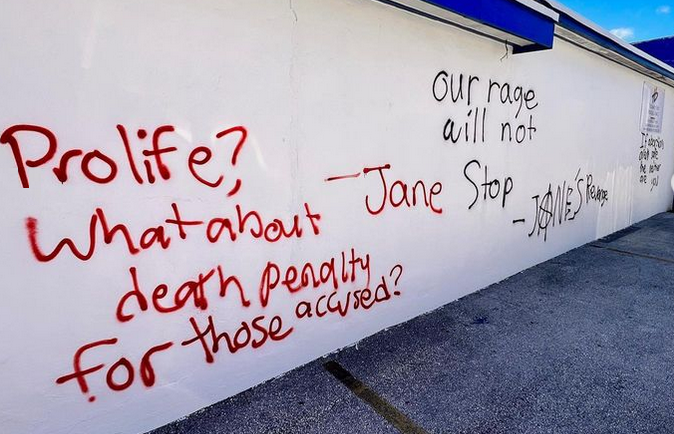 Prolife?
What about
death penalty
for those accused?
—Jane
our rage
will not
Stop
—JANE'S Revenge
If abortions
aren't safe
the neither
are you